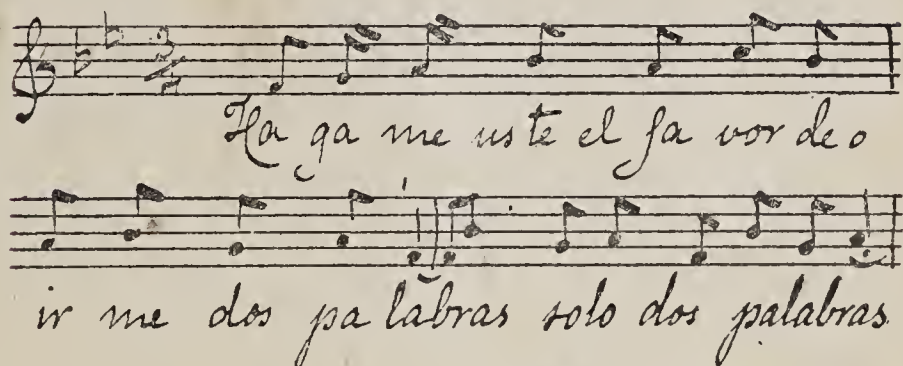 Ha ga me us te el fa vor de o
ir me dos pa labras solo dos palabras